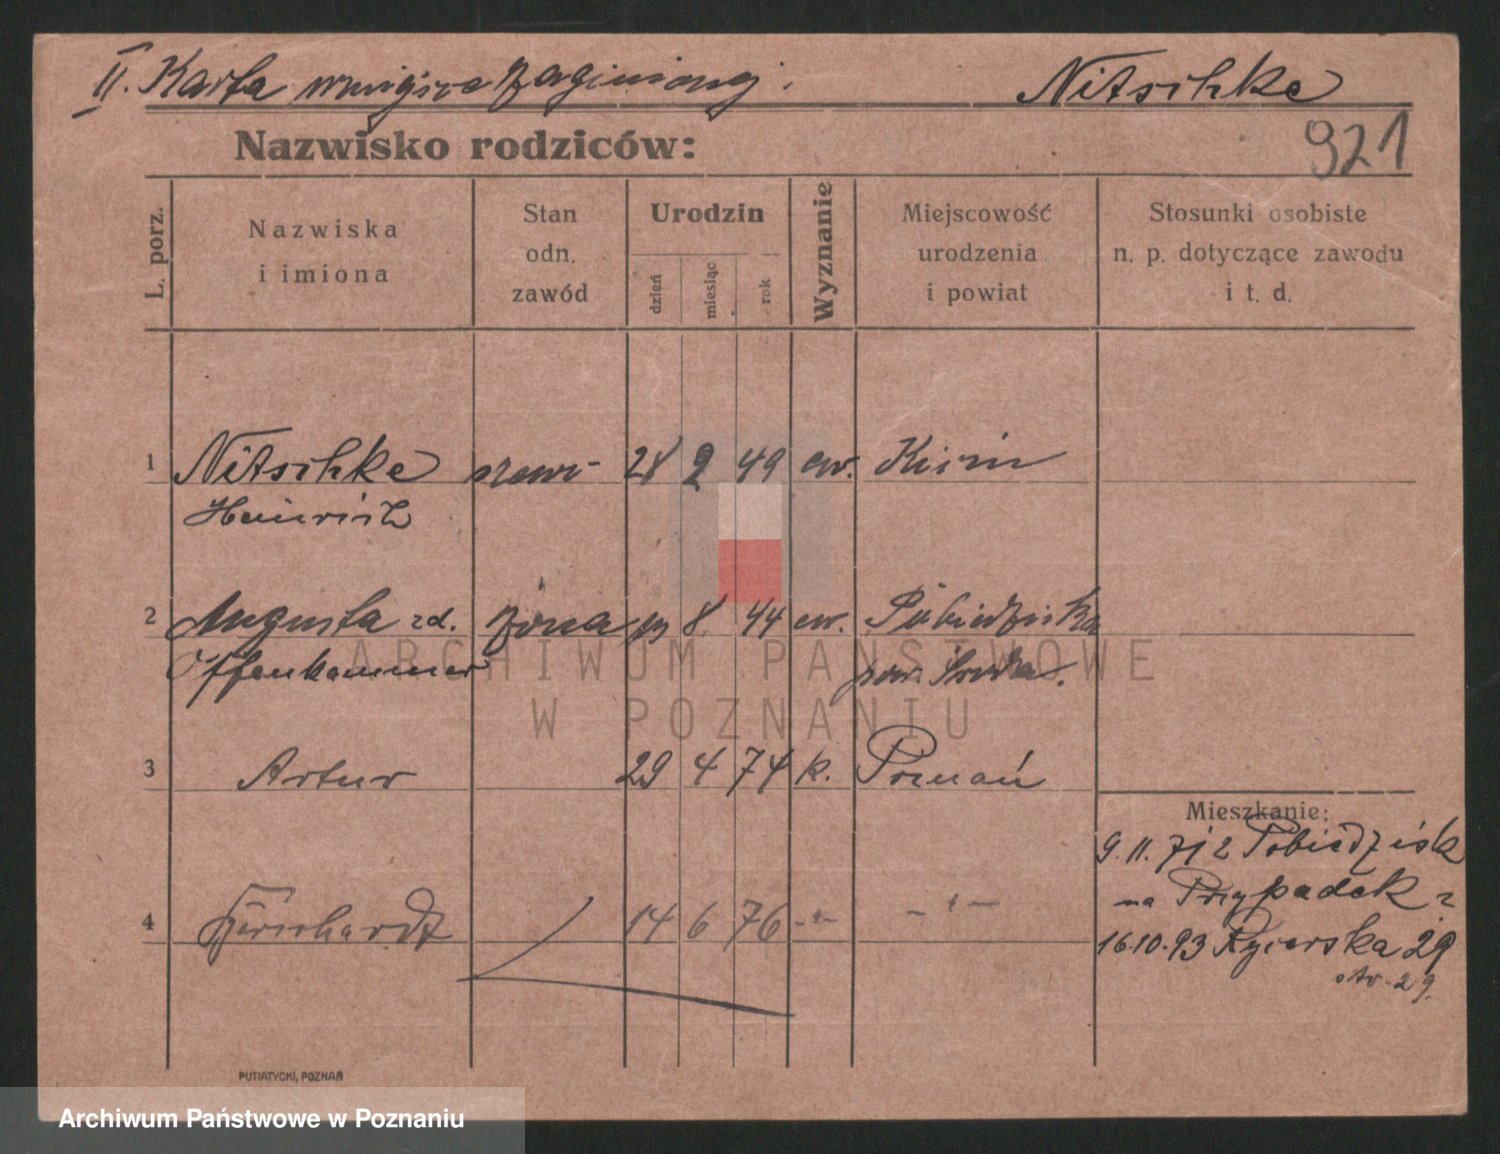 II. Karta w miejsce zaginionej. Nitschke
921
Nazwisko rodziców:
L. porz.
Nazwiska
i imiona
Stan
odn.
zawód
Urodzin
dzień
miesiąc
rok
Wyznanie
Miejscowość
urodzenia
i powiat
Stosunki osobiste
n. p. dotyczące zawodu
i t. d.
1 Nitschke 28 2 49 ew.
Heinrich
2 Augusta zd. żona 8 44 ew. Pobiedziska
Offenhammer pow. Środa.
3 Artur 29 4 74 k. Poznań
Mieszkanie:
9. 11. 71 z Pobiedzisk
na Przypadek 2
4 14 6 76 -"- -"-
16.10.93 Rycerska 29
str. 29.
PUTIATYCKI, POZNAŃ
ARCHIWUM PAŃSTWOWE
W POZNANIU
Archiwum Państwowe w Poznaniu